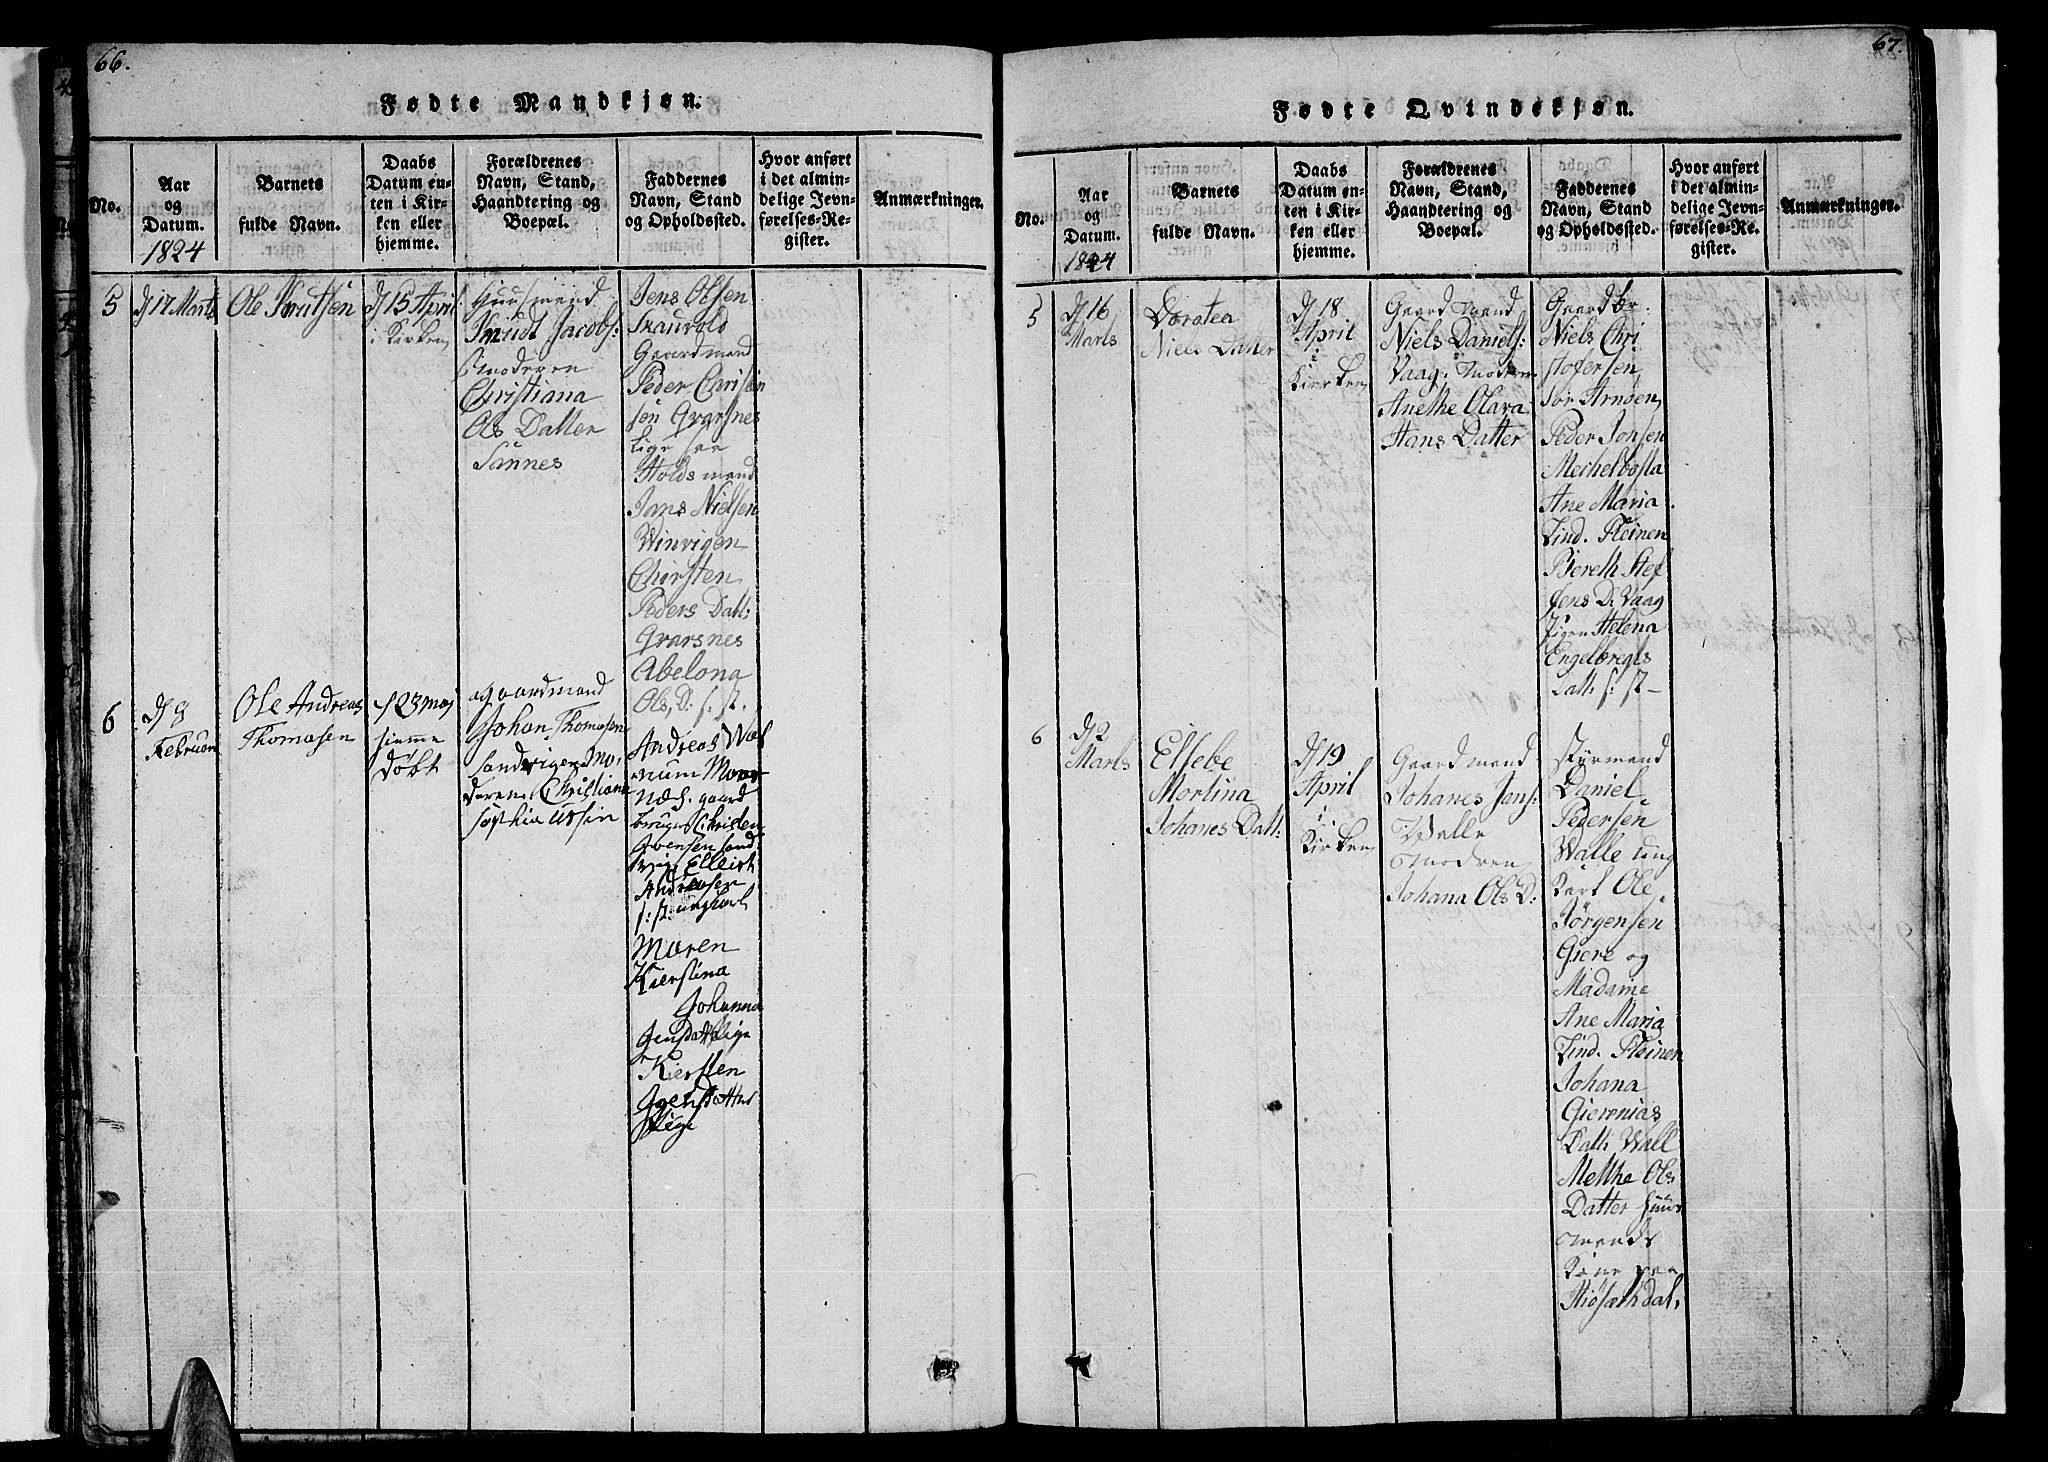 66.
Fødte Mandkjøn.
No.
Aar
og
Datum.
1824
Barnets
fulde Navn.
Daabs
Datum en-
ten i Kir-
ken eller
hjemme.
Forældrenes
Navn, Stand,
Haandtering og
Boepæl.
Faddernes
Navn, Stand
og Opholdssted.
Hvor anført
i det almin-
delige Jevn-
førelses-Re-
gister.
Anmærkninger.
5
d 17 Marts
Ole Knutsen
d 15 April
i Kirken
Huusmand
Knudt Jacobs:
Moderen
Christiana
Ols Datter
Sannes
Jens Olsen
Skauvold
Gaardmand
Peder Chrisin
søn Grarsnes
Lige saa
Holdsmand
Jans Nielsen
Winvigen
Chirsten
Peders Datt:
Grarsnes
Abelona
Ols, D: s: st.
6
d 8
Februar
Ole Andreas
Thomasen
d 23 maj
hiemme
døbt
gaardmand
Johan Thomasen
sandvigen Mo-
deren Christiana
sophia
Andreas
num
gaard
bruger Christen
Svensen sand
vig, Elleist
Andreasen
s: st: ungkarl
Maren
Kierstina
Johanna
Jensdatt
Kiersten
Jensdatter
67.
Fødte Qvindekjøn.
No.
Aar
og
Datum.
1824
Barnets
fulde Navn.
Daabs
Datum en-
ten i Kir-
ken eller
hjemme.
Forældrenes
Navn, Stand,
Haandtering og
Boepæl.
Faddernes
Navn, Stand
og Opholdssted.
Hvor anført
i det almin-
delige Jevn-
førelses-Re-
gister.
Anmærkninger.
5
d 16
Marts
Dorotea
Niels Datter
d 18
April
i
Kierken
Gaardmand
Niels Daniels:
Vaag: Modren
Anethe Olava
Hans Datter
Gaardbr:
Niels Chri
stofersen
Sør Arnøen
Peder Jonsen
Mechelbosta
Ane Maria
Lind. Fleinen
Bereth Stef
fens D: Vaag
Pigen Helena
Engelbregts
Datt: s: st-
6
d 2
Marts
Elsebe
Mortina
Johanes Datt:
d 19
April
i
Kirken
Gaardmand
Johanes Jans:
Valle
Modren
Johana Ols D:
Styrmand
Daniel
Pedersen
Valle ung
Karl Ole
Jørgensen
Giere og
Madame
Ane Maria
Lind. Fleinen
Johana
Gieremias
Datt: Wall
Methe Ols
Datter huus
mands
Kone paa